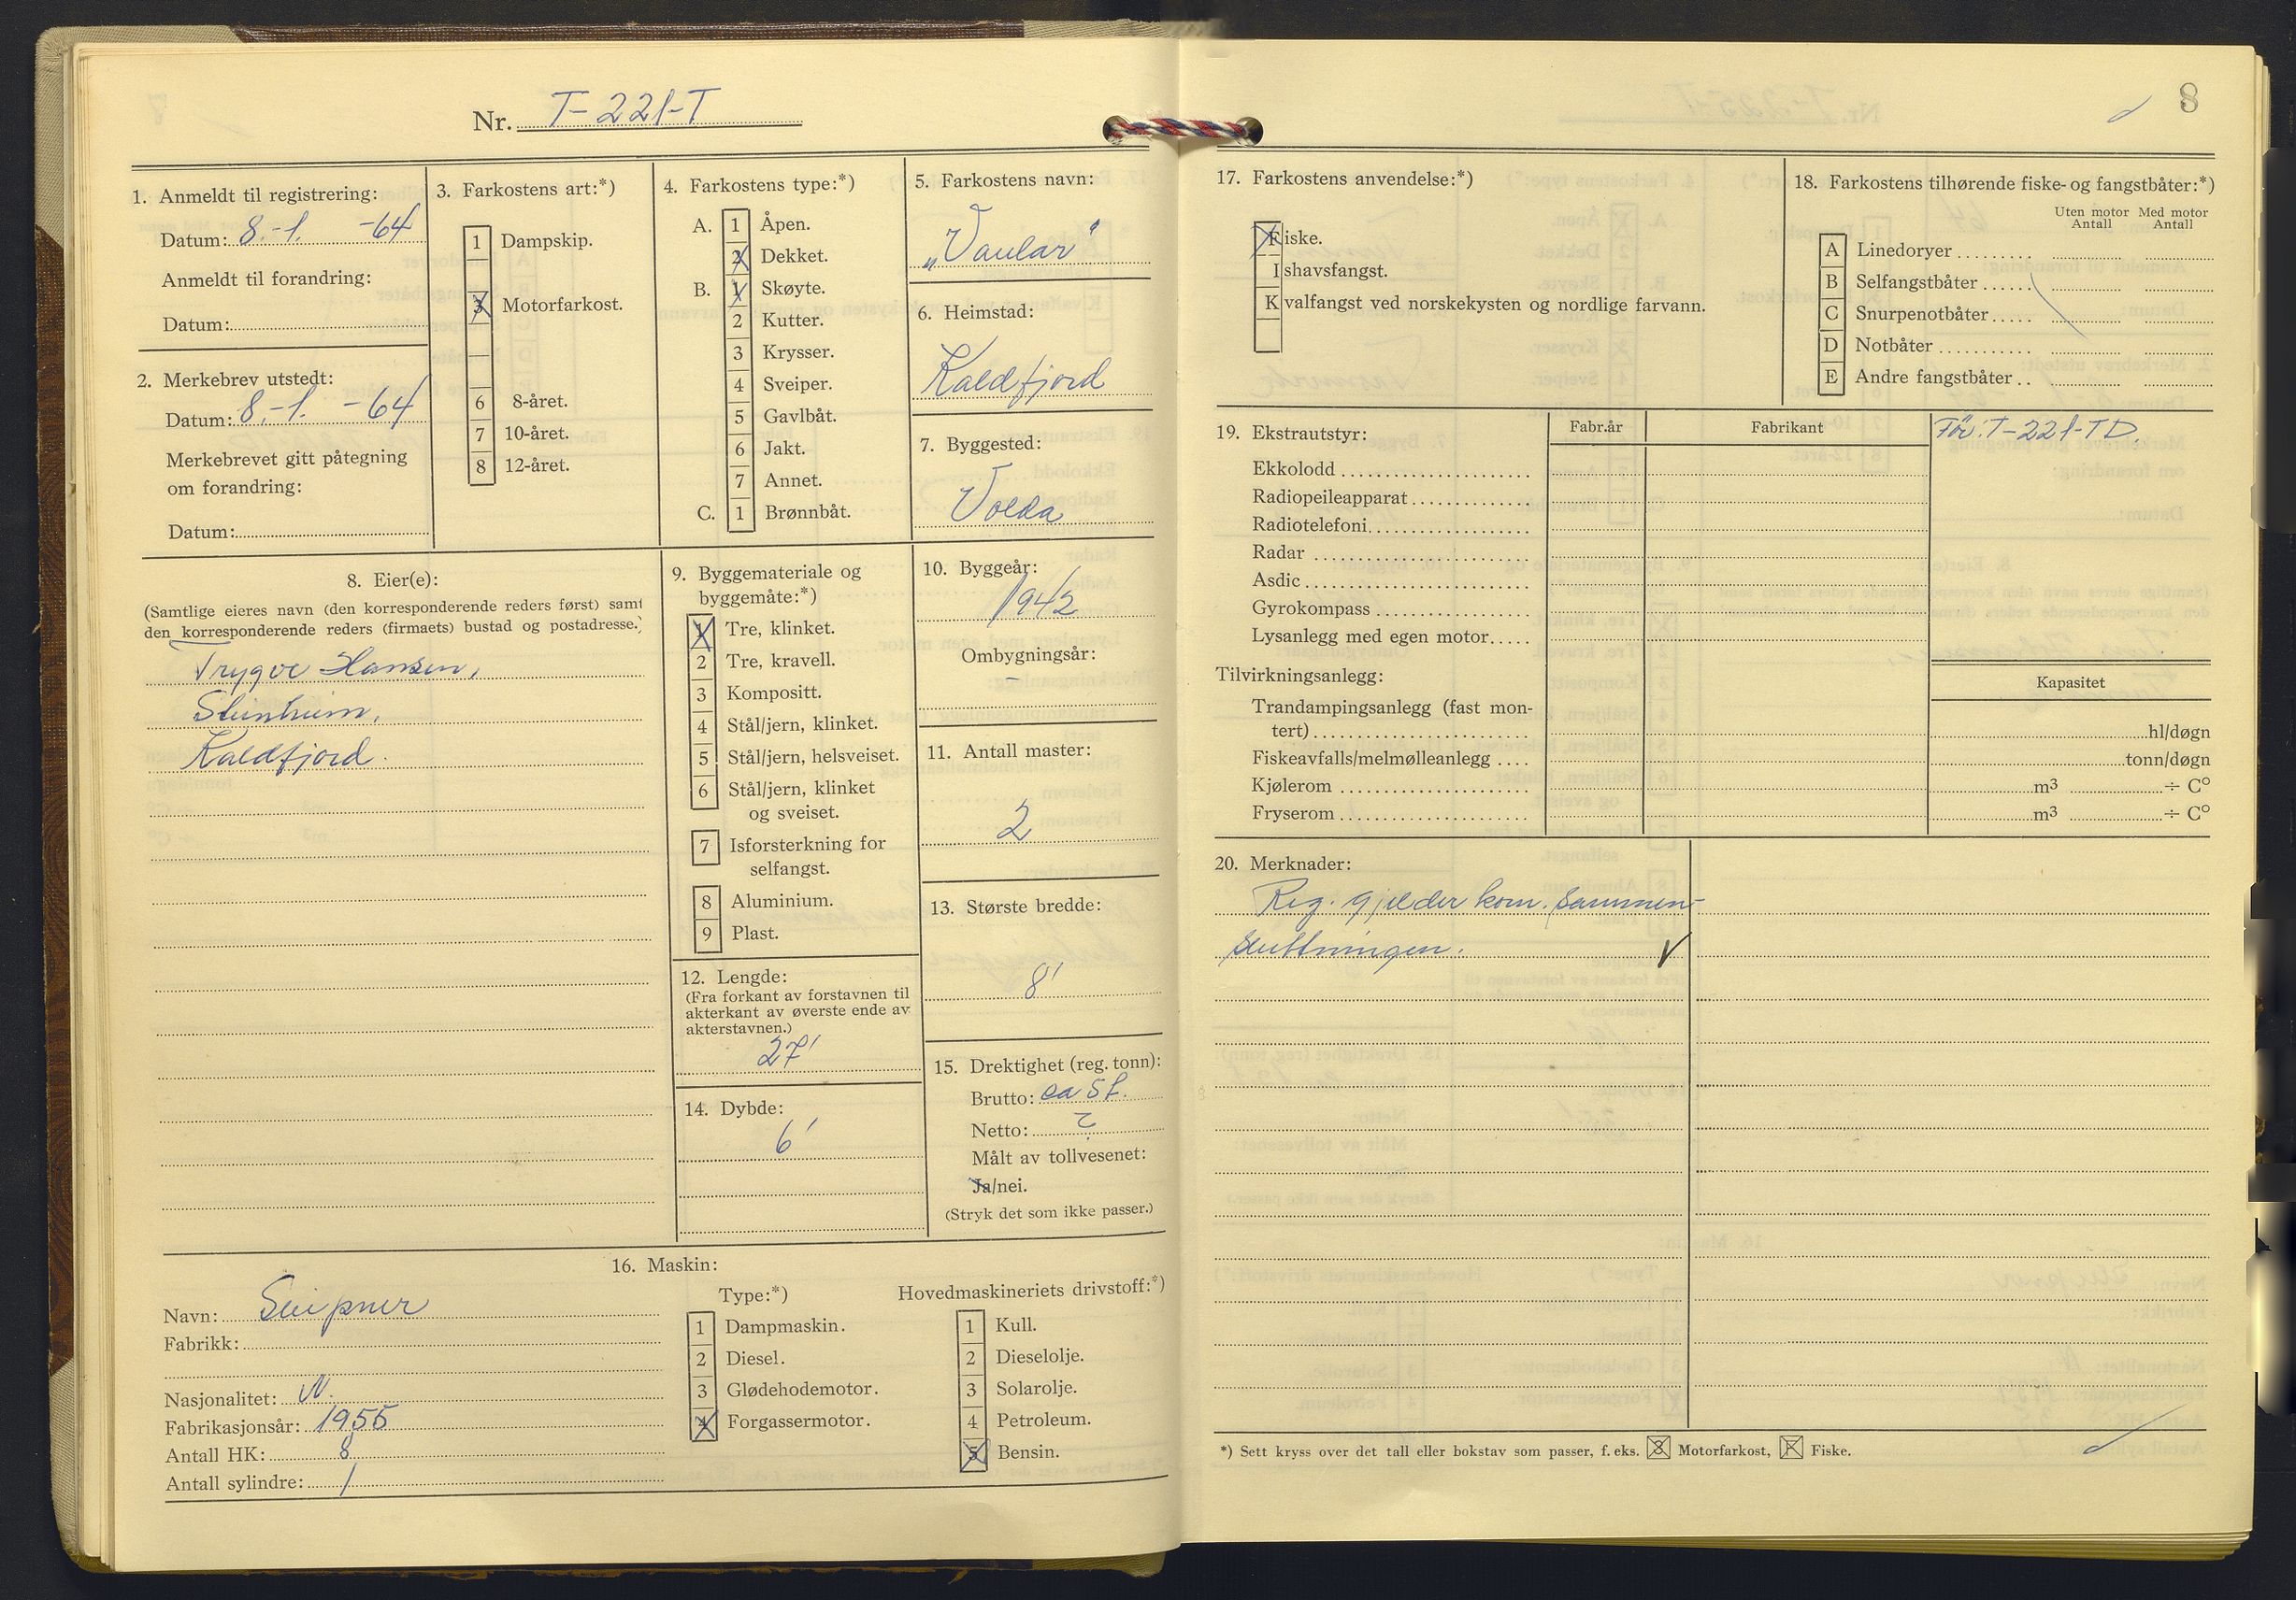 Nr. T-221-T
1. Anmeldt til registrering:
Datum: 8.-1. -64
Anmeldt til forandring:
Datum:
2. Merkebrev utstedt:
Datum: 8.-1. -64
Merkebrevet gitt påtegning
om forandring:
Datum:
3. Farkostens art:*)
1 Dampskip.
3 Motorfarkost.
6 8-året.
7 10-året.
8 12-året.
4. Farkostens type:*)
A. 1 Åpen.
2 Dekket.
B. 1 Skøyte.
2 Kutter.
3 Krysser.
4 Sveiper.
5 Gavlbåt.
6 Jakt.
7 Annet.
C. 1 Brønnbåt.
5. Farkostens navn:
„Vaular"
6. Heimstad:
Kaldfjord
7. Byggested:
Volda
8. Eier(e):
(Samtlige eieres navn (den korresponderende reders først) samt
den korresponderende reders (firmaets) bustad og postadresse.)
Trygve Hansen,
Steinheim,
Kaldfjord.
9. Byggemateriale og
byggemåte:*)
1 Tre, klinket.
2 Tre, kravell.
3 Kompositt.
4 Stål/jern, klinket.
5 Stål/jern, helsveiset.
6 Stål/jern, klinket
og sveiset.
7 Isforsterkning for
selfangst.
8 Aluminium.
9 Plast.
10. Byggeår:
1942
Ombygningsår:
–
11. Antall master:
2
12. Lengde:
(Fra forkant av forstavnen til
akterkant av øverste ende av
akterstavnen.)
27'
13. Største bredde:
8'
14. Dybde:
6'
15. Drektighet (reg. tonn):
Brutto: ca 5 t.
Netto: ?
Målt av tollvesenet:
Ja/nei.
(Stryk det som ikke passer.)
16. Maskin:
Navn: Sleipner
Fabrikk:
Nasjonalitet: N.
Fabrikasjonsår: 1955
Antall HK: 8
Antall sylindre: 1
Type:*)
1 Dampmaskin.
2 Diesel.
3 Glødehodemotor.
4 Forgassermotor.
Hovedmaskineriets drivstoff:*)
1 Kull.
2 Dieselolje.
3 Solarolje.
4 Petroleum.
5 Bensin.
8
17. Farkostens anvendelse:*)
Fiske.
Ishavsfangst.
Kvalfangst ved norskekysten og nordlige farvann.
18. Farkostens tilhørende fiske- og fangstbåter:*)
Uten motor Med motor
Antall Antall
A Linedoryer
B Selfangstbåter
C Snurpenotbåter
D Notbåter
E Andre fangstbåter
19. Ekstrautstyr: Fabr.år Fabrikant Før: T-221-TD.
Ekkolodd
Radiopeileapparat
Radiotelefoni
Radar
Asdic
Gyrokompass
Lysanlegg med egen motor
Tilvirkningsanlegg: Kapasitet
Trandampingsanlegg (fast mon-
tert) hl/døgn
Fiskeavfalls/melmølleanlegg tonn/døgn
Kjølerom m³ ÷ C°
Fryserom m³ ÷ C°
20. Merknader:
Reg. gjelder kom. sammen-
sluttningen. V
*) Sett kryss over det tall eller bokstav som passer, f. eks. 3 Motorfarkost, F Fiske.